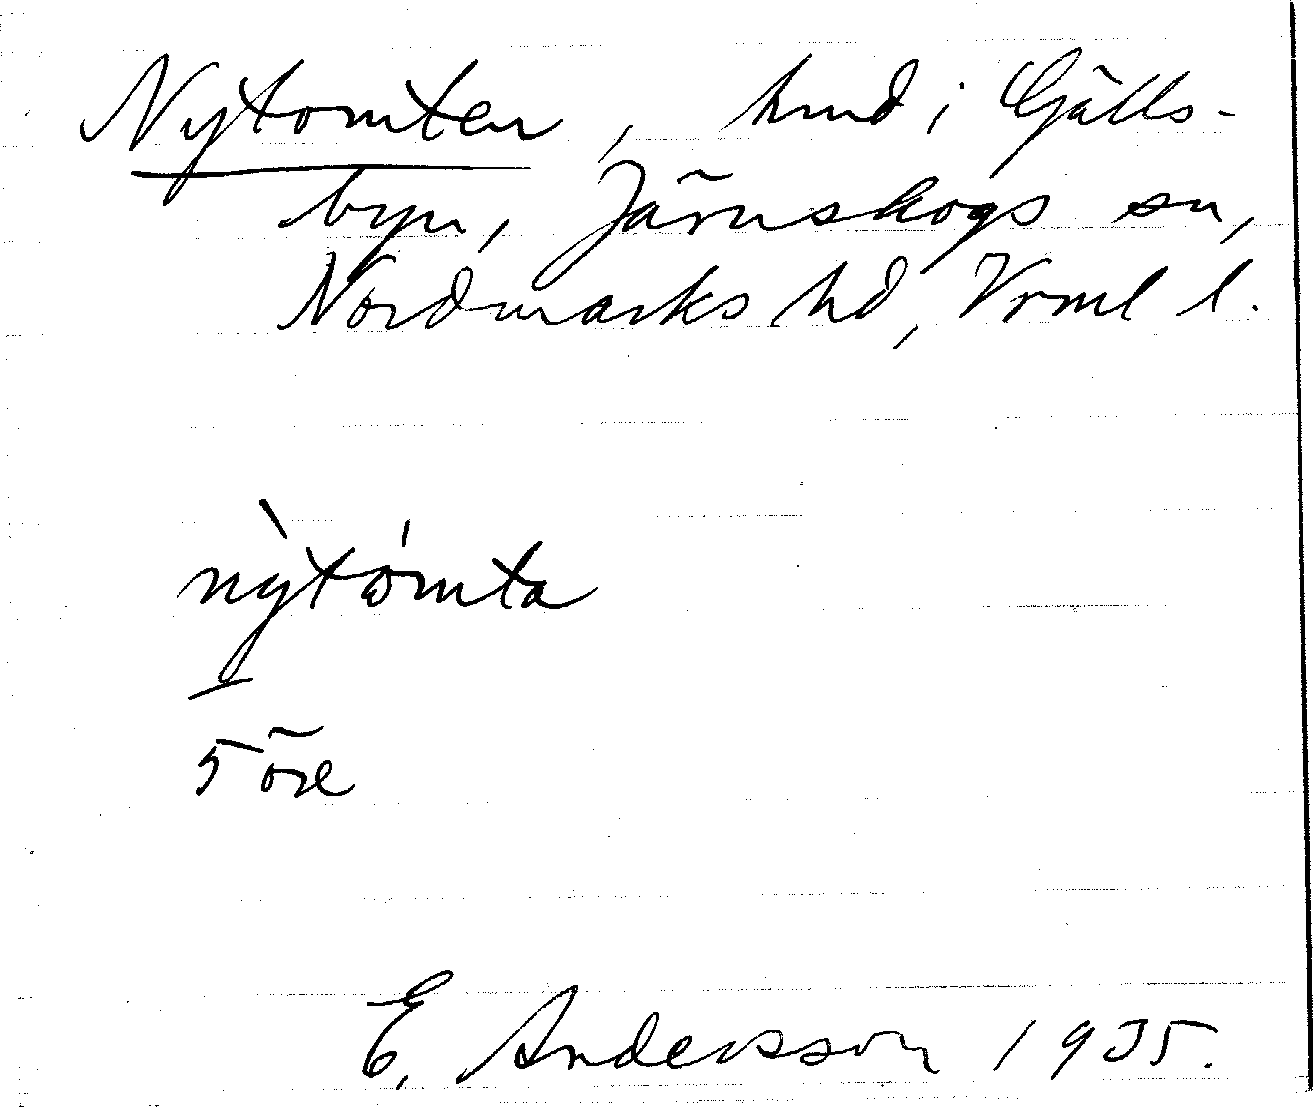 Nytomten, hmd i Gälls-
byn, Järnskogs sn,
Nordmarks hd, Vrml l.
nỳtòmta
I
5 öre
E. Andersson 1935.